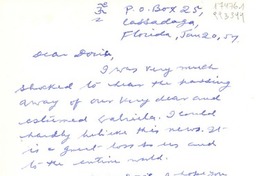 P.O. Box 25,
Cassadaga,
Florida, Jan 20, 57
Dear Doris,
I was very much
shocked to hear the passing
away of our very dear and
esteemed Gabriela. I could
hardly believe this news. It
is a great loss to us and
to the entire world.